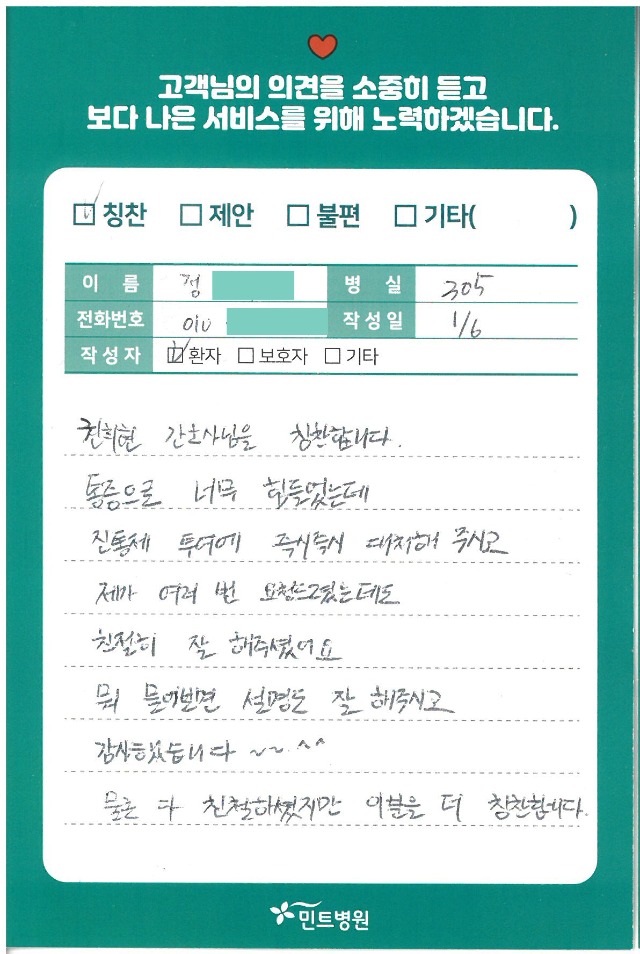 고객님의 의견을 소중히 듣고
보다 나은 서비스를 위해 노력하겠습니다.
칭찬 제안 불편 기타( )
이 름 정 병 실 305
전화번호 010 작성일 1/6
작성자 환자 보호자 기타
천희현 간호사님을 칭찬합니다.
통증으로 너무 힘들었는데
진통제 투여에 즉시즉시 대처해 주시고
제가 여러 번 요청드렸는데도
친절히 잘 해주셨어요
뭐 물어보면 설명도 잘 해주시고
감사했습니다 ~~.^^
물론 다 친절하셨지만 이분을 더 칭찬합니다.
민트병원